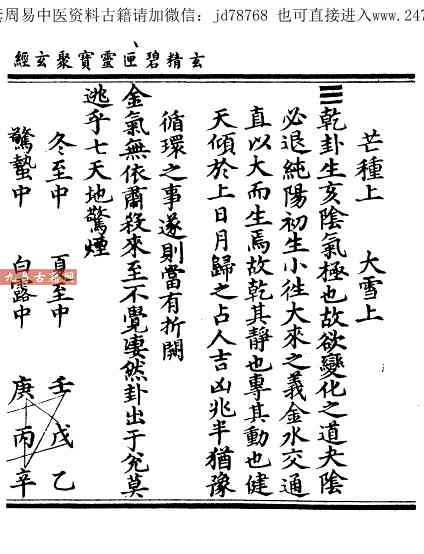 套周易中医资料古籍请加微信：jd78768 也可直接进入www.247
經玄聚寶靈匣碧精玄
芒種上 大雪上
☰乾卦生亥陰氣極也故欲變化之道夬陰
必退純陽初生小徃大來之義金水交通
直以大而生焉故乾其靜也專其動也健
天傾於上日月歸之占人吉凶兆半猶豫
循環之事遂則當有折開
金氣無依肅殺來至不覺凄然卦出于兊莫
逃乎七天地驚煙
冬至中 夏至中 壬戊乙
驚蟄中 白露中 庚丙辛